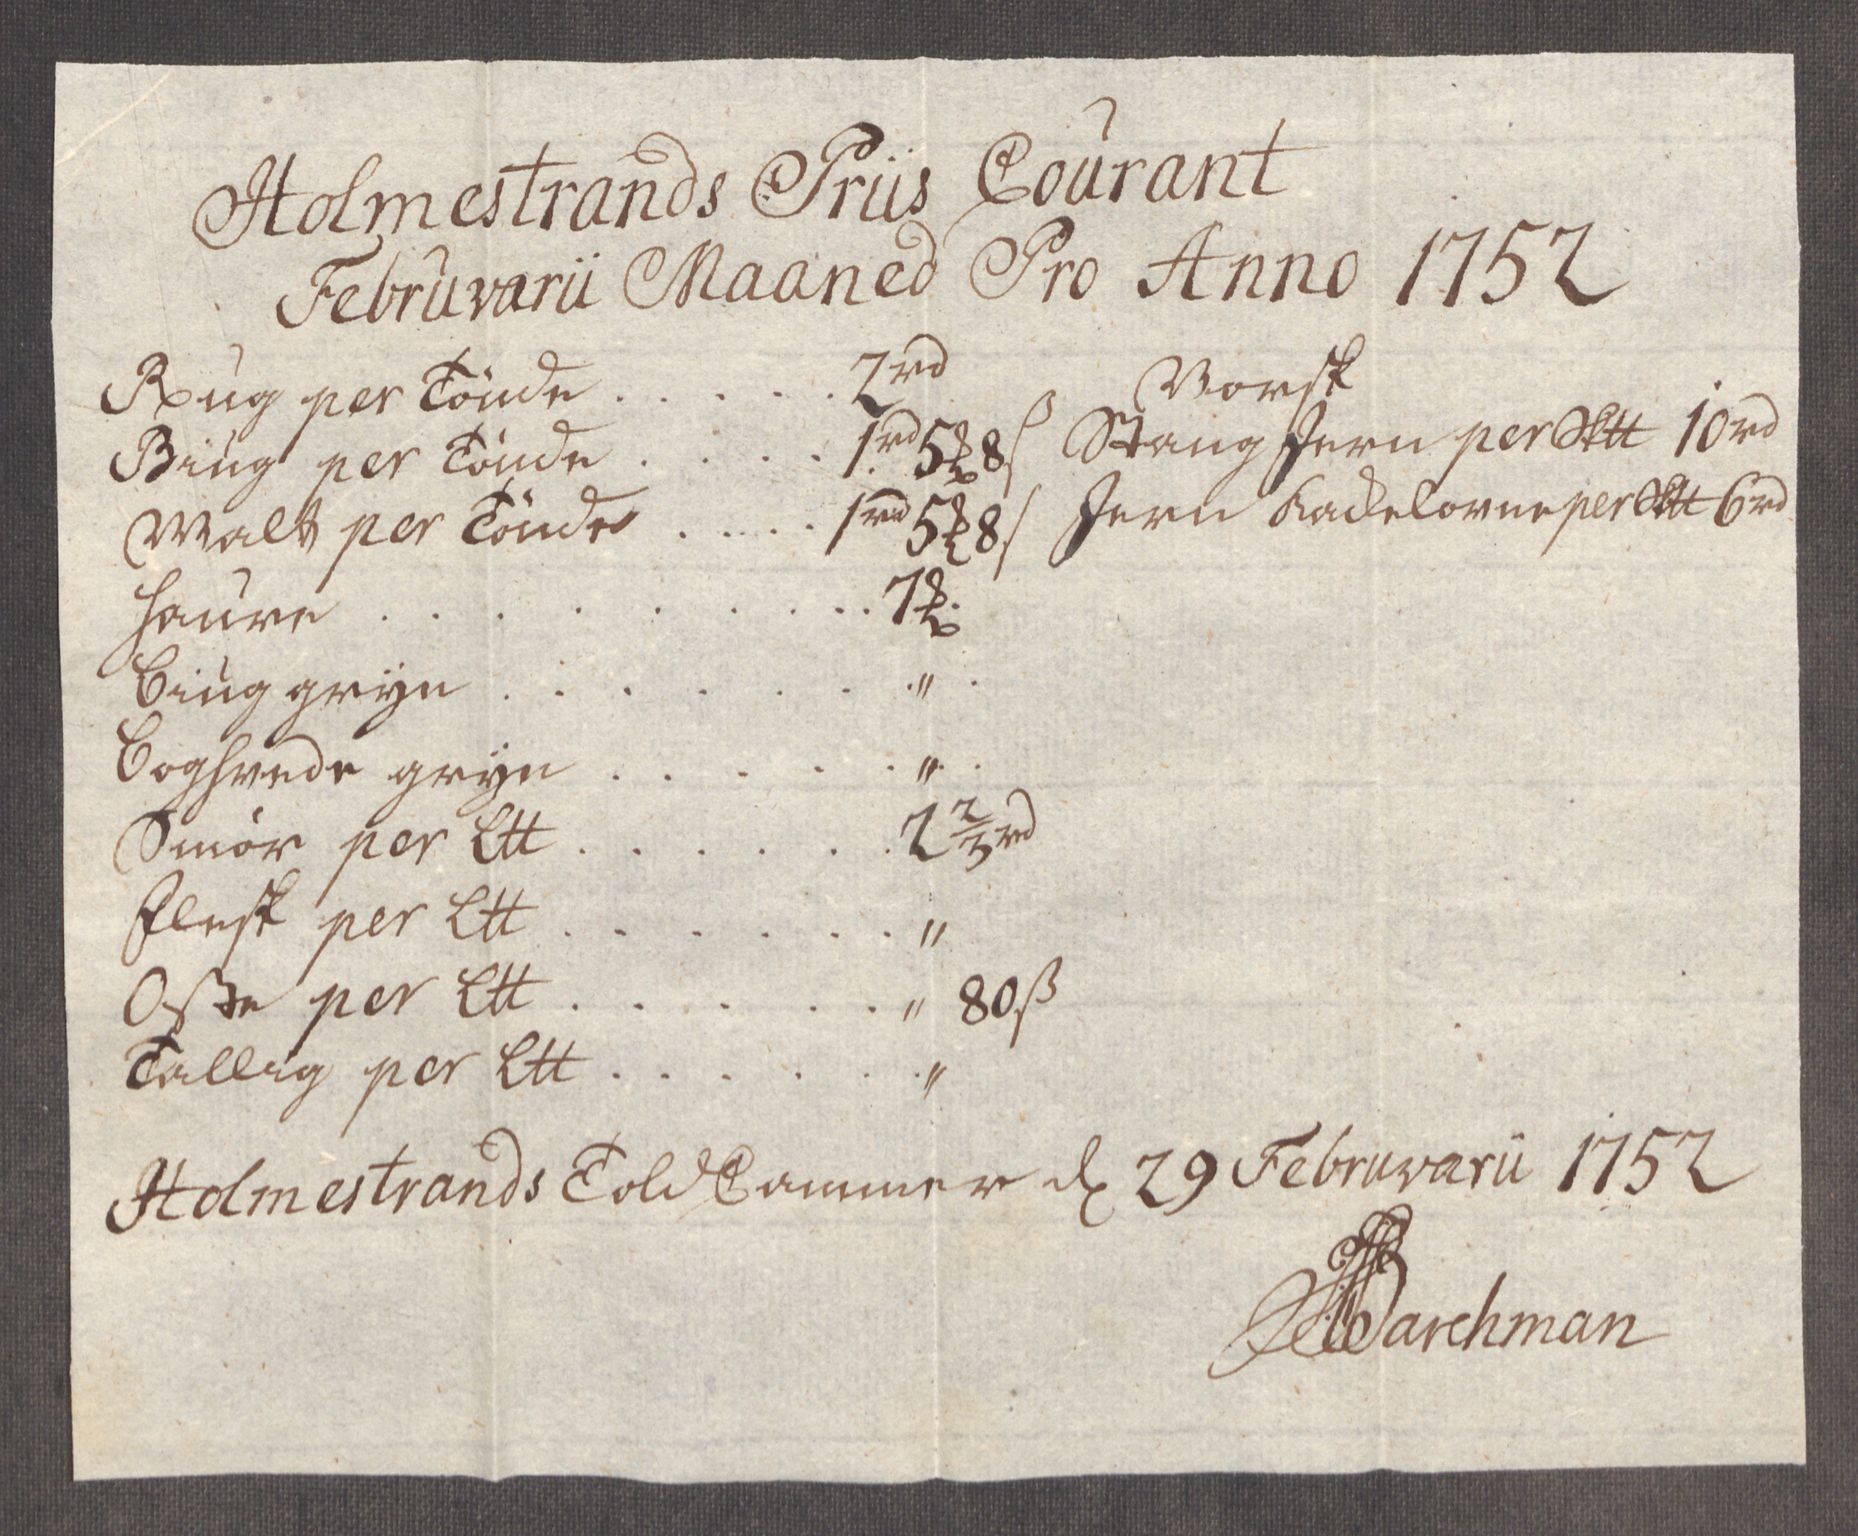 Holmestrands Priis Courant
Februvarii Maaned Pro Anno 1752
Rug per Tönde . . . . . 2 rd
Biug per Tönde . . . . 1 rd 5 8 ß
Malt per Tönde . . . . 1 rd 5 8 ß
Haure . . . . . . . . 7
Biug gryn . . . . . . "
Boghvede gryn . . . . . "
Smör per L℔ . . . . . . 2 2/3 rd
Flesk per L℔ . . . . . . "
Oste per L℔ . . . . . " 80 ß
Tallig per L℔ . . . . . "
Norsk
Stang Jern per Sk℔ 10 rd
Jern Kackelovne per Sk℔ 6 rd
Holmestrands Told Cammer d 29 Februvarii 1752
Barchman